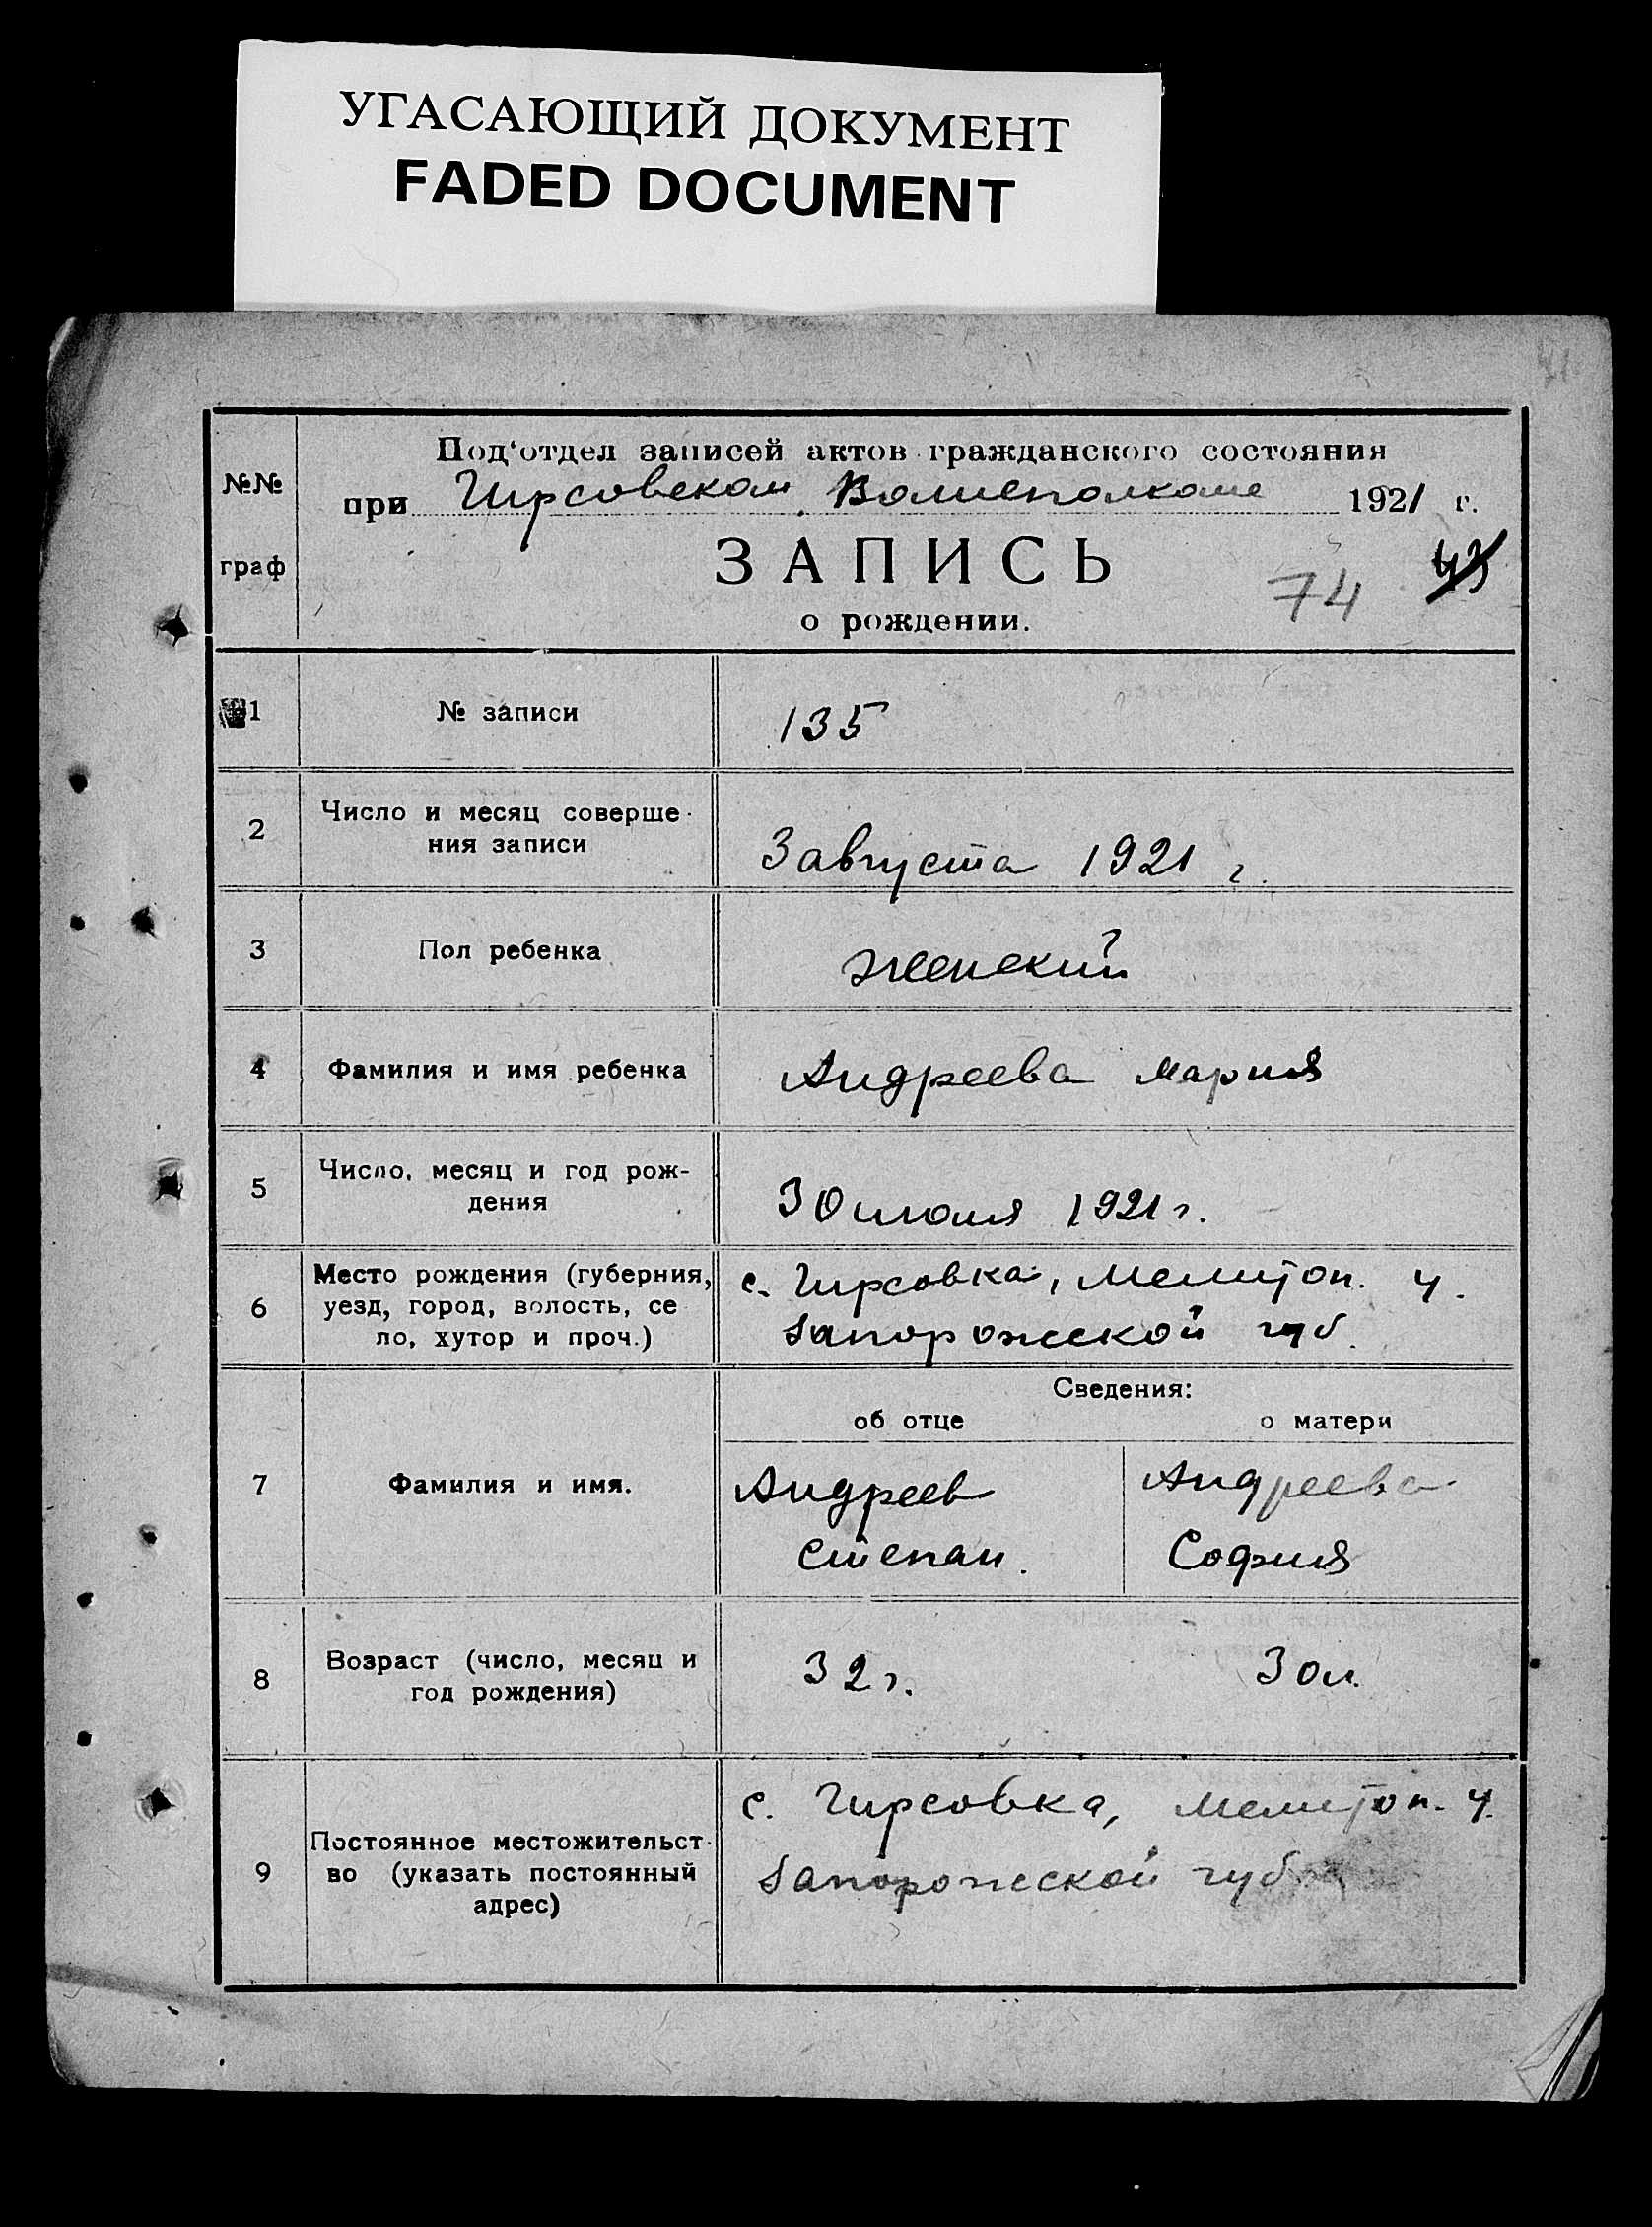 УГАСАЮЩИЙ ДОКУМЕНТ
FADED DOCUMENT
№№
граф
Под‘отдел записей актов гражданского состояния
при Гирсовском Волисполкоме 1921 г.
ЗАПИСЬ
о рождении.
74
1 № записи 135
2 Число и месяц соверше-
ния записи
3 августа 1921 г.
3 Пол ребенка женский
4 Фамилия и имя ребенка Андреева Мария
5 Число, месяц и год рож-
дения
30 июля 1921 г.
6 Место рождения (губерния,
уезд, город, волость, се
ло, хутор и проч.)
с. Гирсовка, Мелитоп. у.
Запорожской губ.
Сведения:
об отце о матери
7 Фамилия и имя.
Андреев Андреева
Степан. София
8 Возраст (число, месяц и
год рождения)
32 г. 30 л.
9 Постоянное местожительст-
во (указать постоянный
адрес)
с. Гирсовка, Мелитоп. у.
Запорожской губ